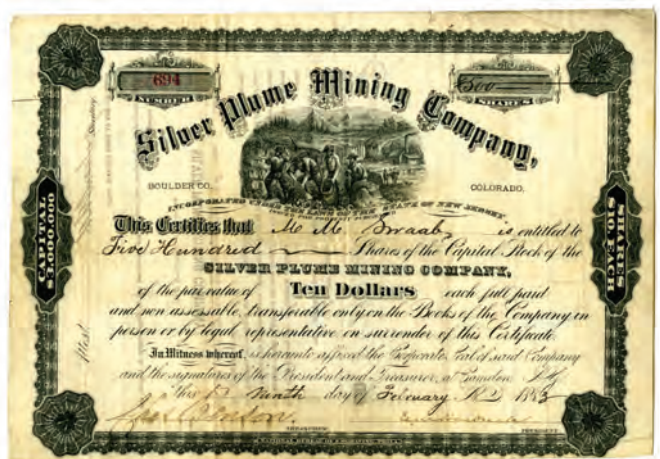 694
NUMBER
500
SHARES
Silver Plume Mining Company,
BOULDER CO. COLORADO.
INCORPORATED UNDER THE LAWS OF THE STATE OF NEW JERSEY
This Certifies that M. M. Swaab is entitled to
Five Hundred Shares of the Capital Stock of the
SILVER PLUME MINING COMPANY,
of the par value of Ten Dollars each full paid
and non assessable, transferable only on the Books of the Company in
person or by legal representative on surrender of this Certificate.
In Witness whereof, is hereunto affixed the Corporate Seal of said Company
and the signatures of the President and Treasurer, at Camden N.J.
this Ninth day of February A.D. 1883
TREASURER
PRESIDENT
CAPITAL
$3,000,000
SHARES
$10 EACH
Attest
Secretary